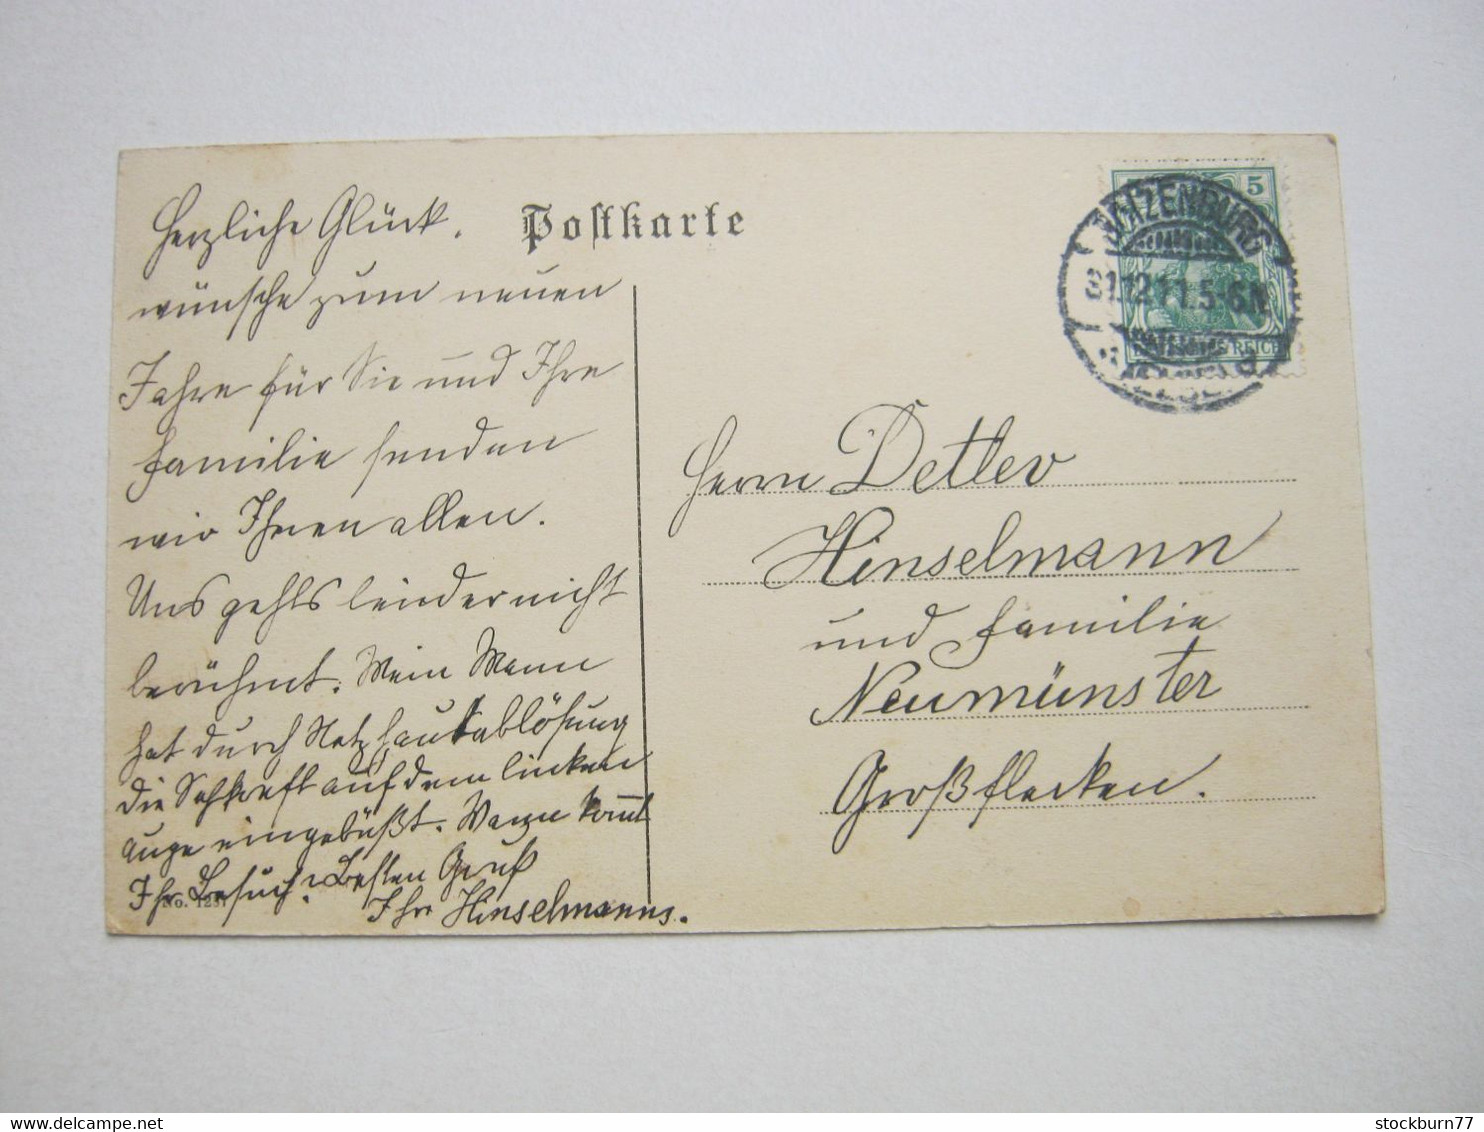 Herzliche Glück.
wünsche zum neuen
Jahre für Sie und Ihre
Familie senden
wir Ihnen allen.
Uns gehts leider nicht
berühmt. Mein Mann
hat durch Netzhautablösung
die Sehkraft auf dem linken
Auge eingebüßt. Wann kommt
Ihr Besuch? Besten Gruß
Ihre Hinselmanns.
No. 123
Postkarte
5
31.12.11.5-6N.
REICH
Herrn Detlev
Hinselmann
und Familie
Neumünster
Großflecken.
stockburn77